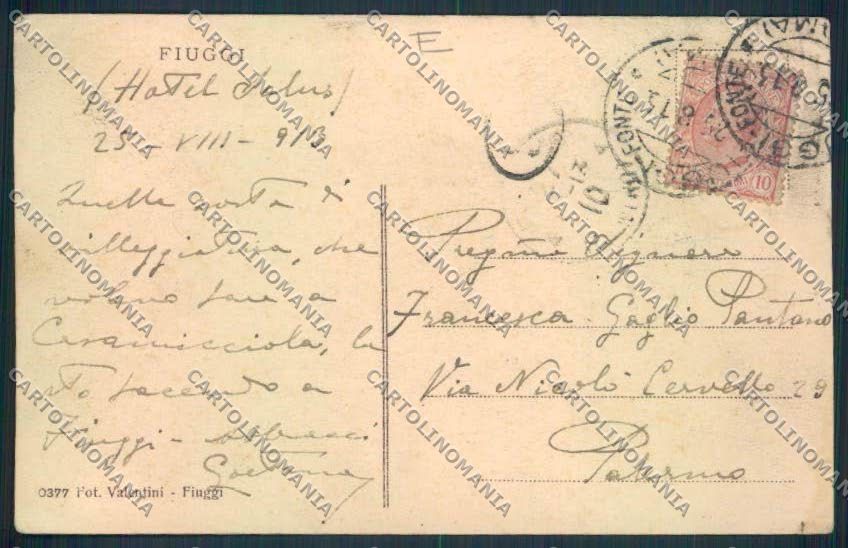 FIUGGI
(Hotel
25 - VIII - 913
Quella sorta di
villeggiatura, che
volevo fare a
Casamicciola, la
sto facendo a
Fiuggi - abbracci
Gaetano
0377 Fot. Valentini - Fiuggi
E
10
Francesca Gaglio Pantano
Via Nicolò Cervello 29
Palermo
CARTOLINOMANIA